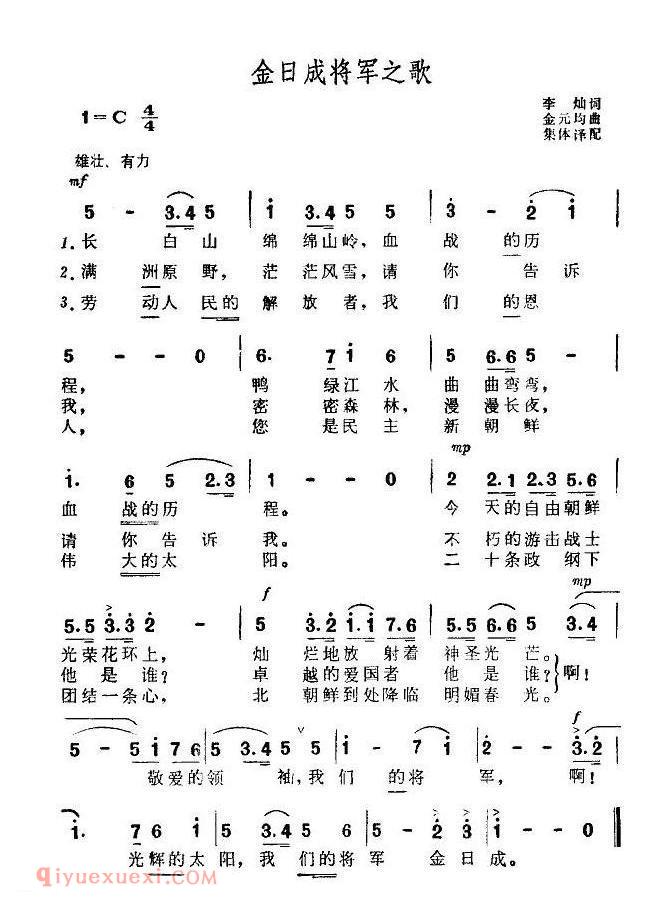 金日成将军之歌
1=C 4/4
李 灿词
金元均曲
集体译配
雄壮、有力
mf
5 - 3.4 5 | i 3.4 5 5 | 3 - 2 i |
1.长 白山 绵 绵山岭,血 战 的历
2.满 洲原 野, 茫 茫风雪,请 你 告诉
3.劳 动人 民的 解 放者,我 们 的恩
5 - - 0 | 6. 7 i 6 | 5 6.6 5 - |
程, 鸭 绿江 水 曲 曲弯弯,
我, 密 密森林, 漫 漫长夜,
人, 您 是民 主 新 朝鲜
mp
i. 6 5 2.3 | 1 - - 0 | 2 2.1 2.3 5.6 |
血 战的历 程。 今 天的自由朝鲜
请 你告诉 我。 不 朽的游击战士
伟 大的太 阳。 二 十条政 纲下
f mp
5.5 3.3 2 - | 5 3.2 i.i 7.6 | 5.5 6.5 5 3.4 |
光荣花环上, 灿 烂地放 射着 神圣光 芒。
他 是谁? 卓 越的爱国者 他 是谁? 啊!
团结一条心, 北 朝鲜到处降临 明媚春 光。
f
5 - 5 i 7 6 | 5 3.4 5 5 | i - 7 6 7 | 2 - - 3.2 |
敬爱的领 袖,我 们 的将 军, 啊!
i. 7 6 i | 5 3.4 5 5 | 6 2 7 | i - - 0 |
光辉的太 阳,我 们的将 军 金日 成。
qiyuexuexi.com